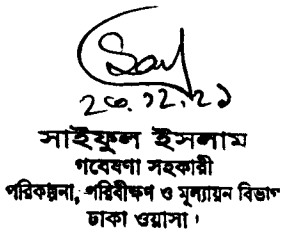 ২৩.১২.২১
সাইফুল ইসলাম
গবেষণা সহকারী
পরিকল্পনা, পরিবীক্ষণ ও মূল্যায়ন বিভাগ
ঢাকা ওয়াসা।